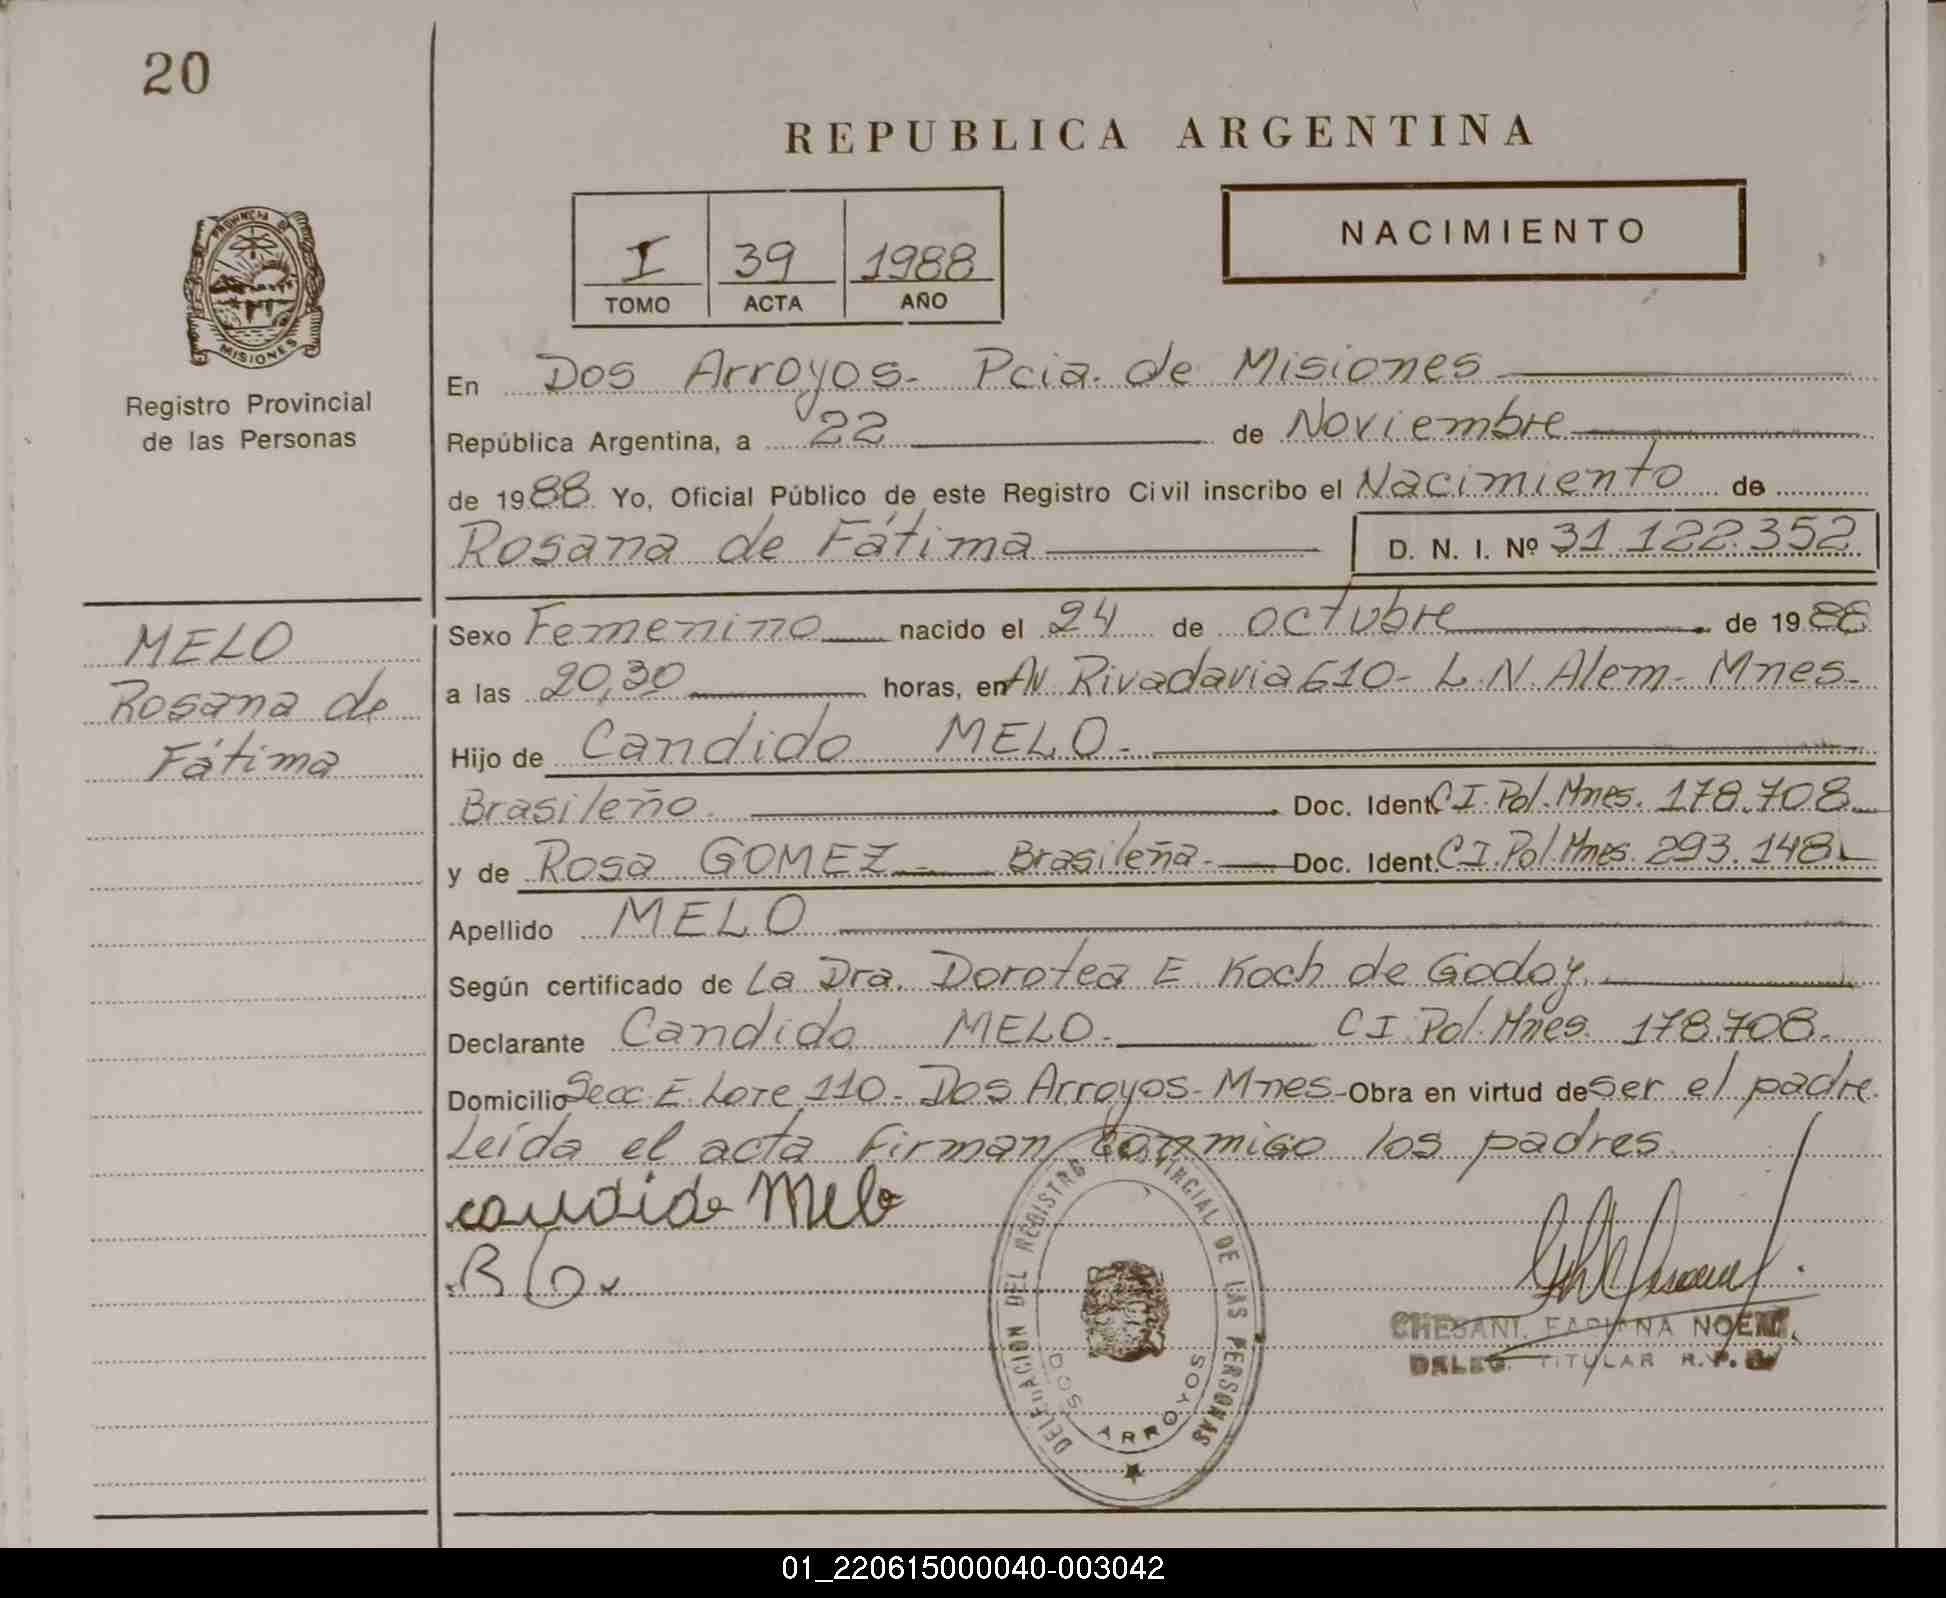 20
REPUBLICA ARGENTINA
NACIMIENTO
I 39 1988
TOMO ACTA AÑO
PROVINCIA DE
MISIONES
Registro Provincial
de las Personas
En Dos Arroyos- Pcia. de Misiones
República Argentina, a 22 de Noviembre
de 1988 Yo, Oficial Público de este Registro Civil inscribo el Nacimiento de
Rosana de Fátima D. N. I. Nº 31.122.352
MELO
Rosana de
Fátima
Sexo Femenino nacido el 24 de octubre de 1988
a las 20,30 horas, en Av Rivadavia 610- L.N. Alem- Mnes-
Hijo de Candido MELO-
Brasileño Doc. Ident. CI. Pol. Mnes. 178.708
y de Rosa GOMEZ- Brasileña- Doc. Ident. CI. Pol. Mnes. 293.148
Apellido MELO
Según certificado de La Dra. Dorotea E. Koch de Godoy.
Declarante Candido MELO- CI. Pol. Mnes. 178.708.
Domicilio Secc. E Lote 110- Dos Arroyos- Mnes- Obra en virtud de ser el padre.
Leída el acta firman conmigo los padres.
candido Melo
DELEGACION DEL REGISTRO PROVINCIAL DE LAS PERSONAS
DOS ARROYOS
CHESANI, FABIANA NOEMI
DELEG. TITULAR R.P.
01_220615000040-003042